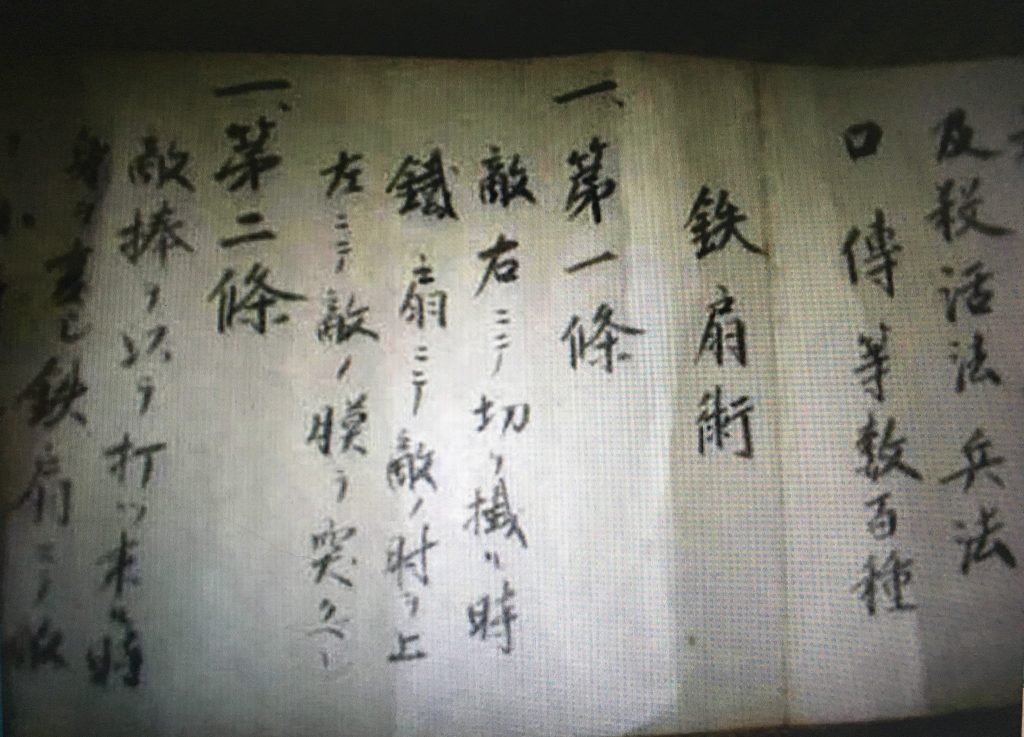 及殺活法兵法
口傳等数百種
鉄扇術
一、第一條
敵右ニテ切リ掛ル時
鐵扇ニテ敵ノ肘ヲ上
左ニテ敵ノ膜ヲ突クベシ
一、第二條
敵捧ヲ以テ打ツ来ル時
鉄扇ニテ